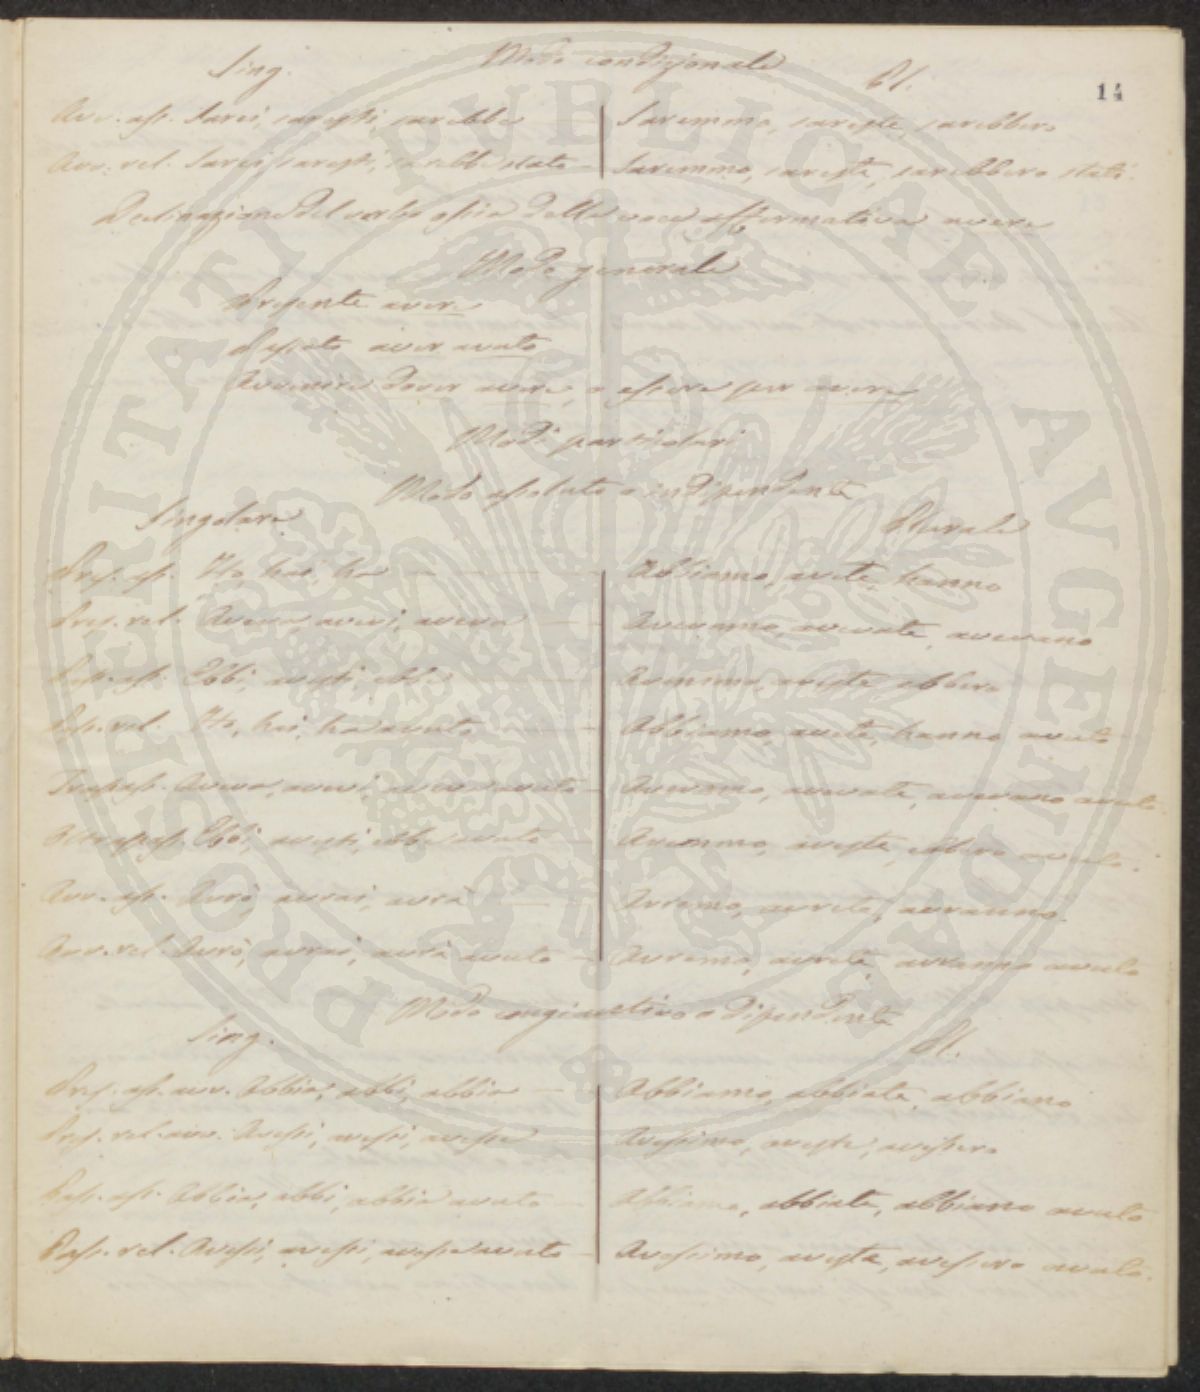 14
Modo condizionale
Sing. Pl.
Avv. ass. Sarei, saresti, sarebbe — Saremmo, sareste, sarebbero
Avv. rel. Sarei, saresti, sarebbe stato — Saremmo, sareste, sarebbero stati.
Declinazione del verbo ossia della voce affermativa avere
Modo generale
Presente avere
Passato aver avuto
Avvenire dover avere, o essere per avere
Modi particolari
Modo assoluto o indipendente
Singolare Plurale
Pres. ass. Ho, hai, ha — Abbiamo, avete, hanno
Pres. rel. Aveva, avevi, aveva — Avevamo, avevate, avevano
Pass. ass. Ebbi, avesti, ebbe — Avemmo, aveste, ebbero
Pass. rel. Ho, hai, ha avuto — Abbiamo, avete, hanno avuto
Trapass. Aveva, avevi, aveva avuto — Avevamo, avevate, avevano avuto
Oltrapass. Ebbi, avesti, ebbe avuto — Avemmo, aveste, ebbero avuto.
Avv. ass. Avrò, avrai, avrà — Avremo, avrete, avranno.
Avv. rel. Avrò, avrai, avrà avuto — Avremo, avrete, avranno avuto
Modo congiuntivo o dipendente
Sing. Pl.
Pres. ass. avv. Abbia, abbi, abbia — Abbiamo, abbiate, abbiano
Pres. rel. avv. Avessi, avessi, avesse — Avessimo, aveste, avessero
Pass. ass. Abbia, abbi, abbia avuto — Abbiamo, abbiate, abbiano avuto
Pass. rel. Avessi, avessi, avesse avuto — Avessimo, aveste, avessero avuto.
PROSPERITATI PUBLICAE AVGENDAE